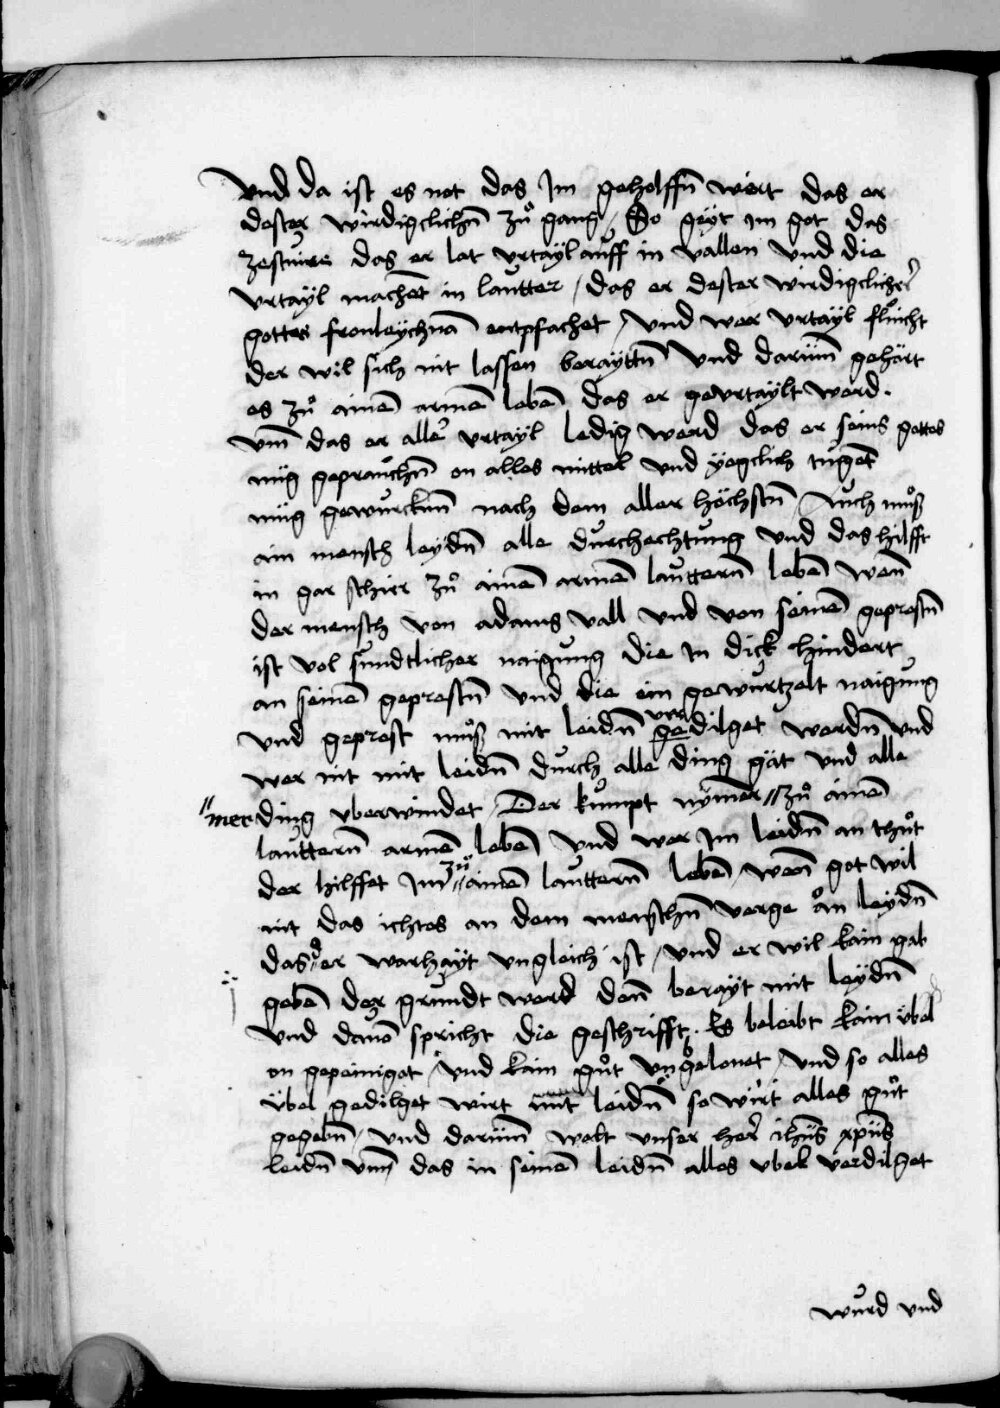 Vnd da ist es not das Im geholffn̄ wert das er
dester wirdigclichn̄ zů gang / So geyt im got das
zestuire das er lat vrtayl auff in vallen vnd die
vrtayl machēt in lautter / das er dester wirdigclicher
gottes fronleychnā entpfachet / vnd wer vrtayl fluicht
der wil sich nit lassen berayttn̄ Vnd darūm gehärt
es zů ainē armē lebē das er gevrtaylt werd .
vm̄ das er aller vrtayl ledig werd das er seins gottes
müg geprauchn̄ on alles mittel vnd yegclich tugēt
müg gewurckn̄ nach dem aller höchstn̄ / Auch můß
ain mensch leydn̄ alle durchechtung vnd das hilfft
in gar schier zů ainē armē lauttern̄ lebē wen̄
der mensch von adams vall vnd von seinē geprestn̄
ist vol sundtlicher naigung die in dick hindert
an seinē geprestn̄ vnd die ein gewurtzelt naigung
vnd geprest můß mit leidn̄ ver gedilget werdn̄ vnd
wer nit mit leidn̄ durch alle ding gät vnd alle
ding vberwindet / Der kumpt nymer // zů ainē
// mer
lauttern̄ armē lebē vnd wer Im leidn̄ an thůt
der hilffet Im // zů ainē lauttern̄ lebē / wen̄ got wil
nit das ichtes an dem menschn̄ verge ån leydn̄
das der warhayt vngleich ist / vnd er wil kain gab
gebē der grundt werd den̄ berayt mit leydn̄
vnd dauō spricht die geschrifft . Es beleibt kain übel
on gepeiniget / vnd kain gůt vngelonet / vnd so alles
übel gedilget wirt mit leidn̄ so wirt alles gůt
gegebn̄ / vnd darūm wolt vnser her ihūs xpūs
leidn̄ vm̄ das in seinē leidn̄ alles vbel verdilget
wurd vnd